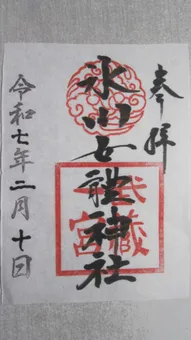 奉拝
氷川女體神社
武藏
一宮
令和七年二月十日